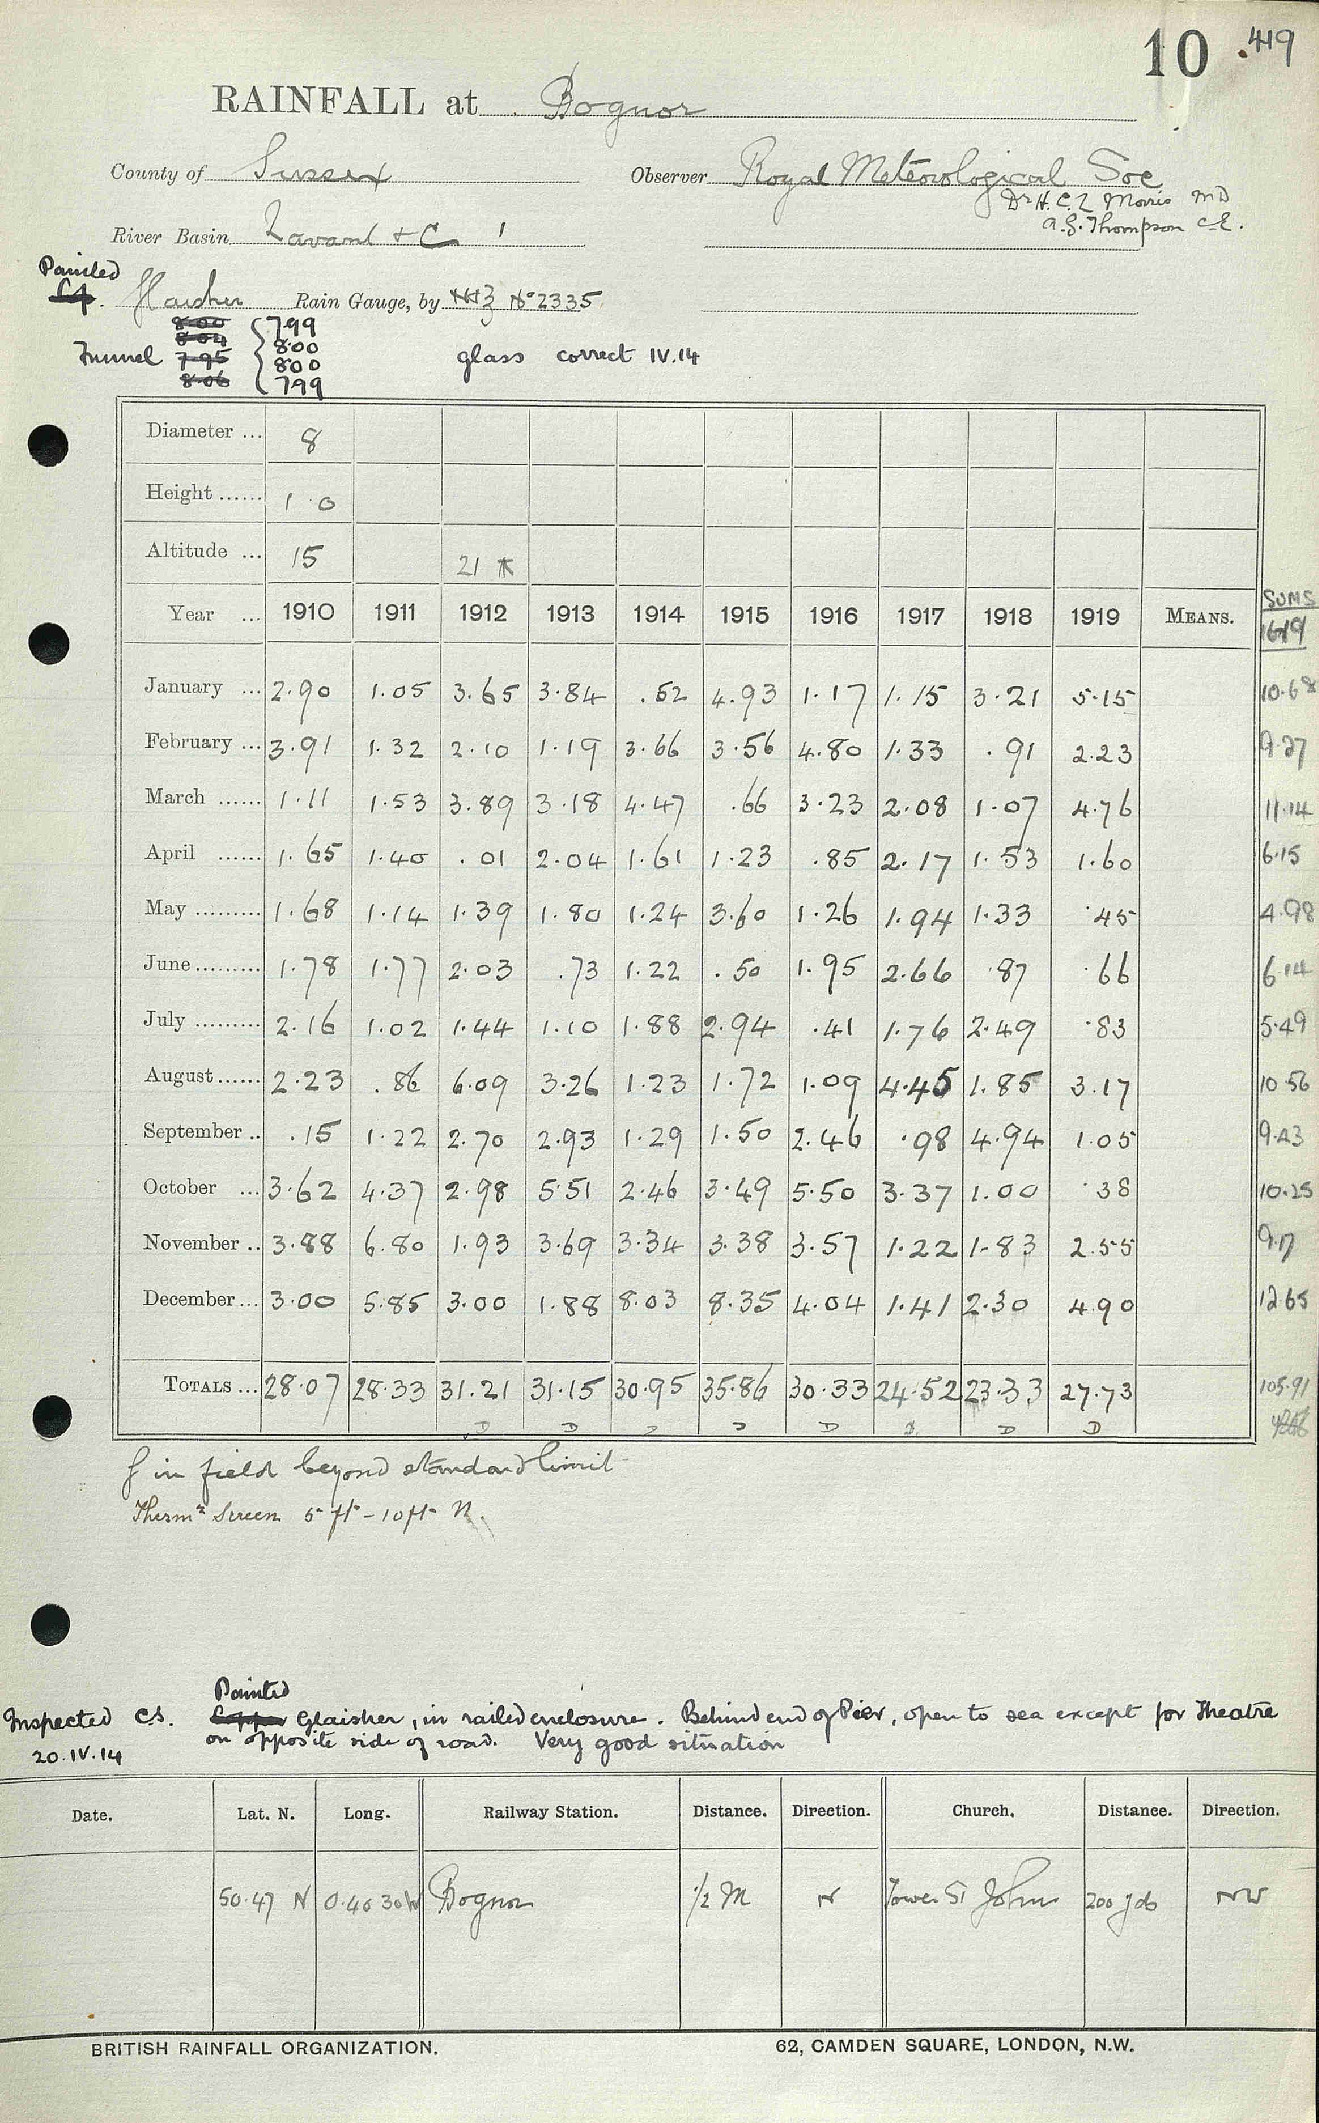 10 .419
RAINFALL at Bognor
County of Sussex Observer Royal Meteorological Soc
Dr H. C. L Morris MD
River Basin Lavant + C 1 A.S. Thompson C.E.
Painted
Glaisher Rain Gauge, by N&Z No 2335
8.00 799
8.04 800
Funnel 7.95 800 glass correct IV.14
8.06 799
Diameter ... 8
Height ...... 1.0
Altitude ... 15 21 *
SUMS
Year ... 1910 1911 1912 1913 1914 1915 1916 1917 1918 1919 MEANS. 16-19
January ... 2.90 1.05 3.65 3.84 .52 4.93 1.17 1.15 3.21 5.15 10.68
February ... 3.91 1.32 2.10 1.19 3.66 3.56 4.80 1.33 .91 2.23 9.27
March ...... 1.11 1.53 3.89 3.18 4.47 .66 3.23 2.08 1.07 4.76 11.14
April ...... 1.65 1.40 .01 2.04 1.61 1.23 .85 2.17 1.53 1.60 6.15
May ......... 1.68 1.14 1.39 1.80 1.24 3.60 1.26 1.94 1.33 .45 4.98
June......... 1.78 1.77 2.03 .73 1.22 .50 1.95 2.66 .87 .66 6.14
July ......... 2.16 1.02 1.44 1.10 1.88 2.94 .41 1.76 2.49 .83 5.49
August...... 2.23 .86 6.09 3.26 1.23 1.72 1.09 4.45 1.85 3.17 10.56
September .. .15 1.22 2.70 2.93 1.29 1.50 2.46 .98 4.94 1.05 9.43
October ... 3.62 4.37 2.98 5.51 2.46 3.49 5.50 3.37 1.00 .38 10.25
November .. 3.88 6.80 1.93 3.69 3.34 3.38 3.57 1.22 1.83 2.55 9.17
December... 3.00 5.85 3.00 1.88 8.03 8.35 4.04 1.41 2.30 4.90 12.65
TOTALS ... 28.07 28.33 31.21 31.15 30.95 35.86 30.33 24.52 23.33 27.73 105.91
D D D D D D D D
in field beyond standard limit
Thermr Screen 5 ft - 10 ft N.
Painted
Inspected C.S. Copper Glaisher, in railed enclosure. Behind end of Pier, open to sea except for Theatre
20.IV.14 on opposite side of road. Very good situation
Date. Lat. N. Long. Railway Station. Distance. Direction. Church. Distance. Direction.
50.47 N 0.40 30 W Bognor 1/2 M N Tower St John 200 yds NW
BRITISH RAINFALL ORGANIZATION. 62, CAMDEN SQUARE, LONDON, N.W.